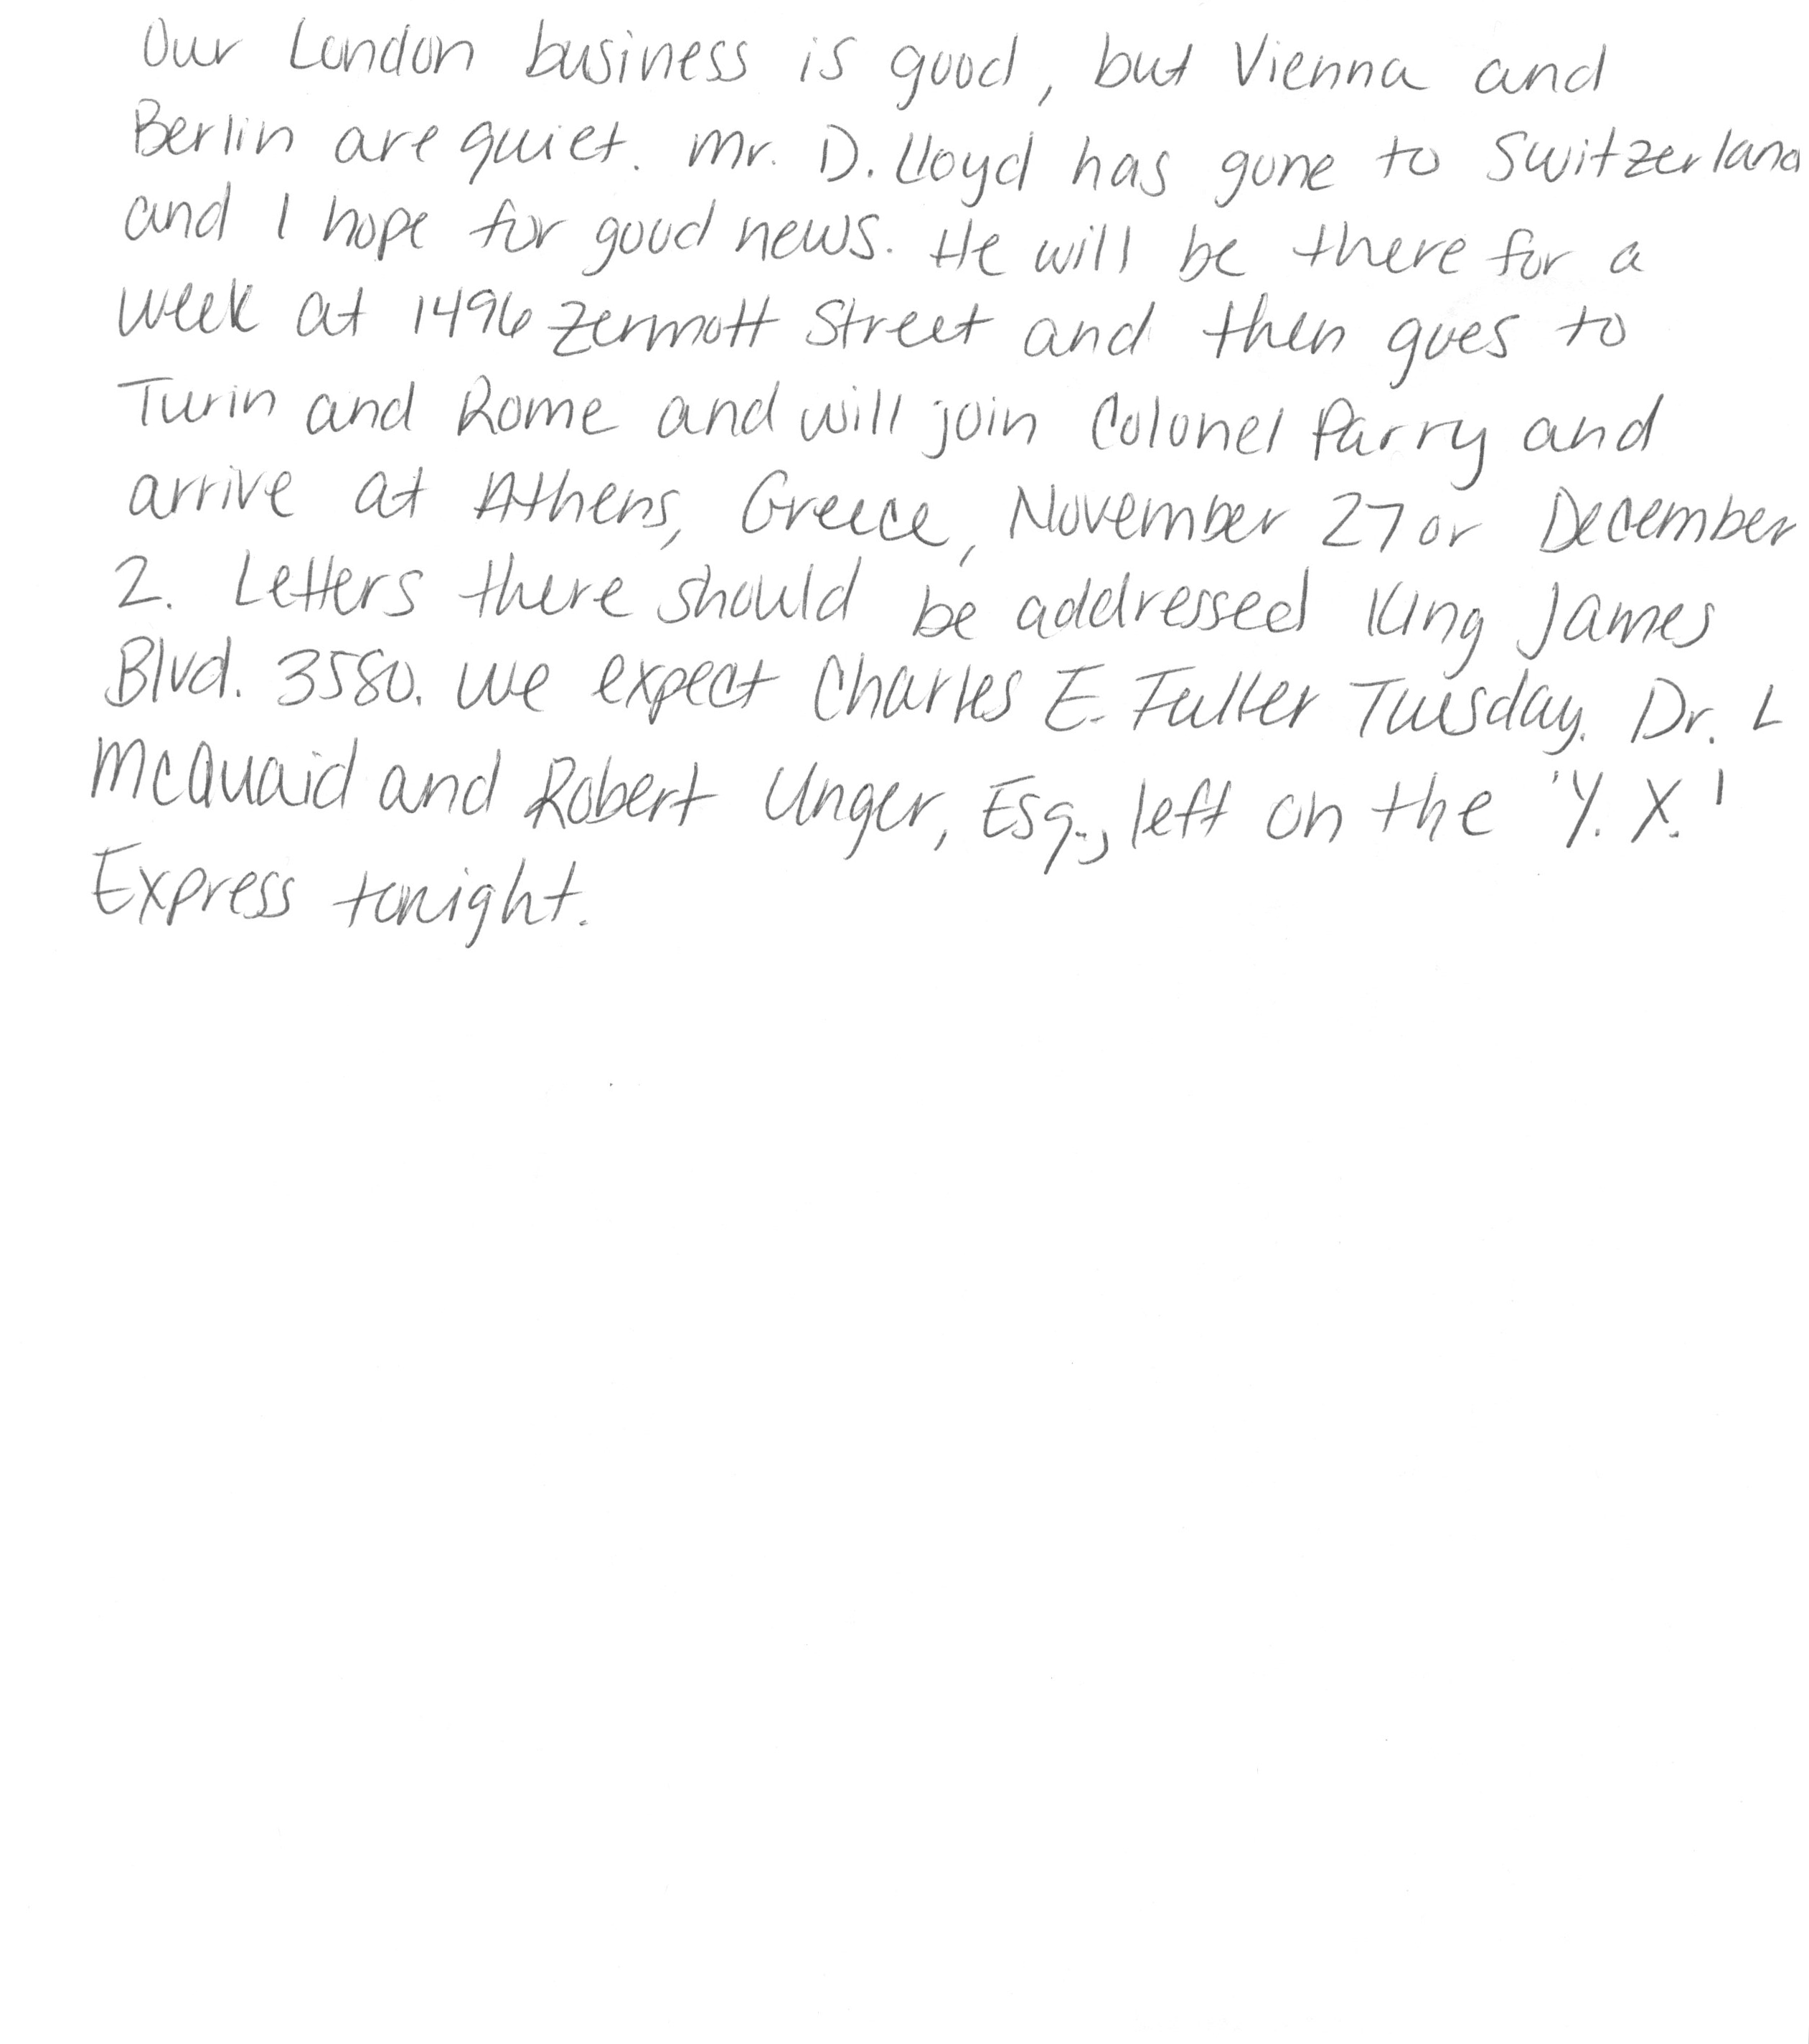 Our London business is good, but Vienna and
Berlin are quiet. Mr. D. Lloyd has gone to Switzerland
and I hope for good news. He will be there for a
week at 1496 Zermott Street and then goes to
Turin and Rome and will join Colonel Parry and
arrive at Athens, Greece, November 27 or December
2. Letters there should be addressed King James
Blvd. 3580. We expect Charles E. Fuller Tuesday. Dr. L
McQuaid and Robert Unger, Esq., left on the 'Y. X.'
Express tonight.